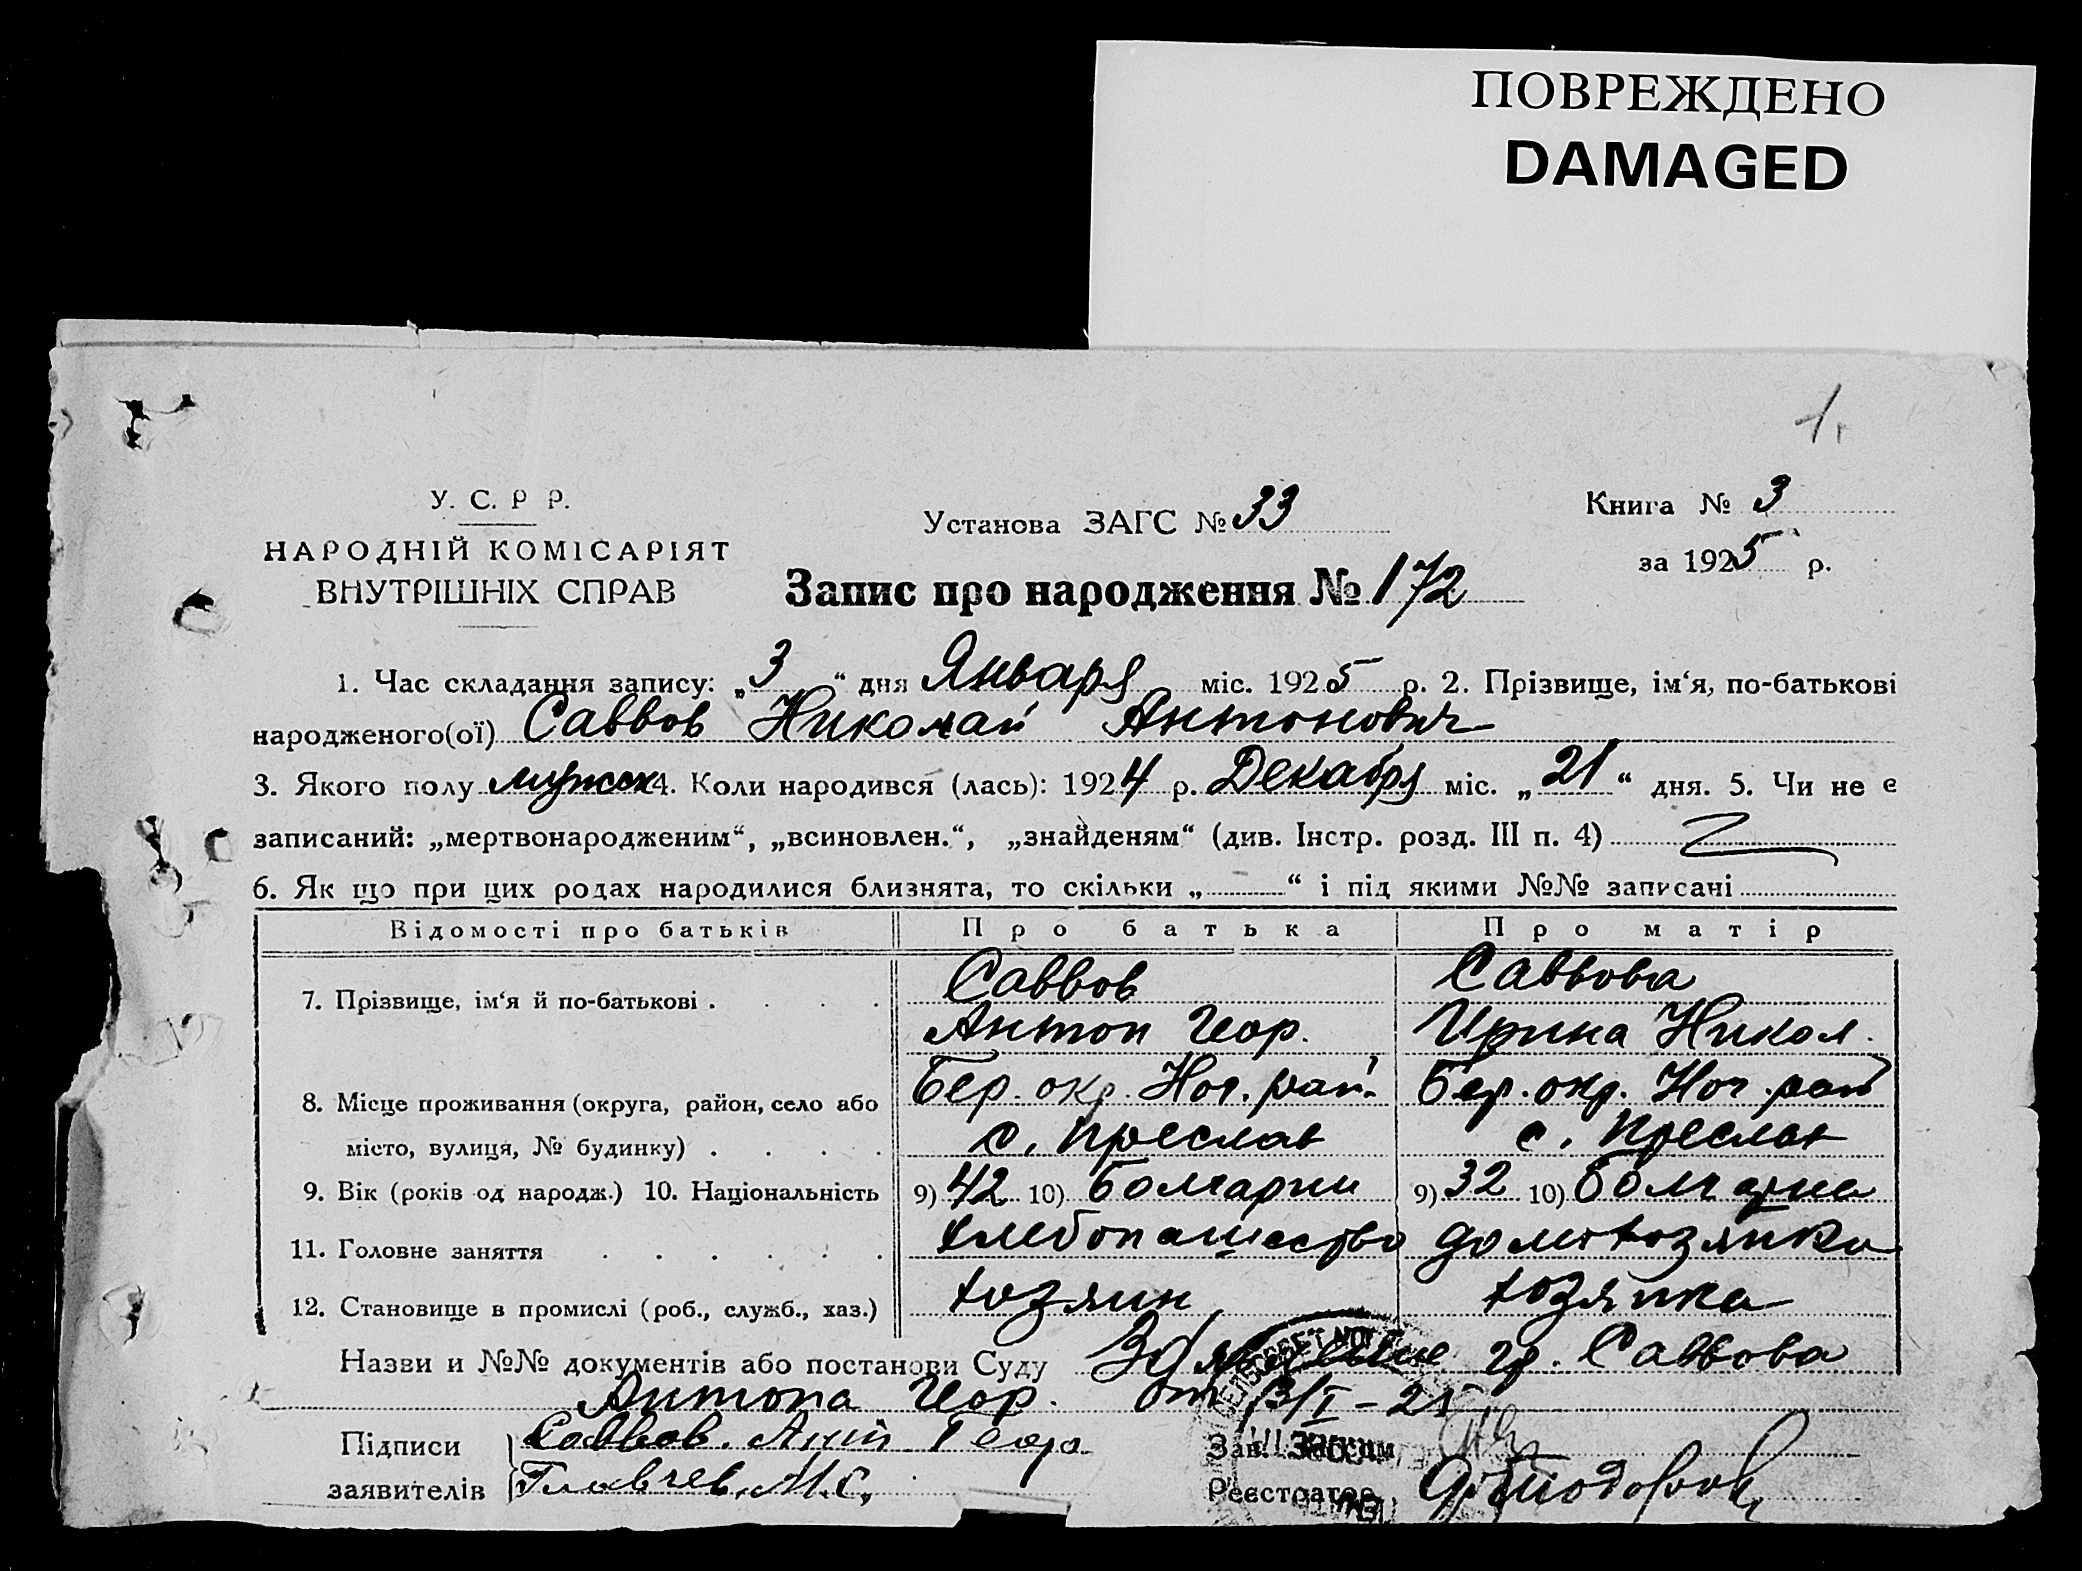 ПОВРЕЖДЕНО
DAMAGED
1.
У. С. Р Р.
НАРОДНІЙ КОМІСАРІЯТ
ВНУТРІШНІХ СПРАВ
Установа ЗАГС № 33
Книга № 3
за 1925 р.
Запис про народження № 172
1. Час складання запису: „3“ дня Января міс. 1925 р. 2. Прізвище, ім‘я, по-батькові
народженого(ої) Саввов Николай Антонович
3. Якого полу мужск 4. Коли народився (лась): 1924 р. Декабря міс. „21“ дня. 5. Чи не є
записаний: „мертвонародженим“, „всиновлен.“, „знайденям“ (див. Інстр. розд. III п. 4)
6. Як що при цих родах народилися близнята, то скільки „ “ і під якими №№ записані
Відомості про батьків Про батька Про матір
7. Прізвище, ім‘я й по-батькові . . . . Саввов Саввова
Антон Геор. Ирина Никол.
8. Місце проживання (округа, район, село або Бер. окр. Ног. рай. Бер. окр. Ног. рай
місто, вулиця, № будинку) . . . . с. Преслав с. Преслав
9. Вік (років од народж.) 10. Національність 9) 42 10) Болгарин 9) 32 10) Болгарка
11. Головне заняття . . . . . . Хлебопашество домохозяйка
12. Становище в промислі (роб., служб., хаз.) хозяин хозяйка
Назви и №№ документів або постанови Суду Заявление гр. Саввова
Антона Геор. от 3/I - 25
Підписи Саввов. Ант Геор Зав. Загсом
заявителів Главчев. М. С. Реєстратор